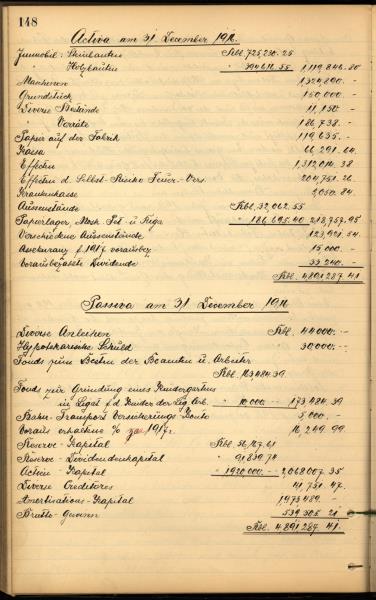 148
Activa am 31. December 1916.
Immobil: Steinbauten Rbl. 725,230. 25
" Holzbauten " 394,611. 55 1,119,846. 80
Maschinen 1,324,890. -
Grundstück 150,000 -
Diverse Bestände 11,150 -
Vorräte 186,738. -
Papier auf der Fabrik 119,635. -
Kassa 66,291. 64.
Effecten 1,312,014. 38
Effecten d. Selbst-Risiko Feuer-Vers. 204,751. 26
Krankenkasse 2,050. 84.
Aussenstände Rbl. 32,062. 55
Papierlager, Mosk. Pet. u. Riga " 186,695. 40 218,757. 95
Verschiedene Aussenstände 123,921. 54
Assekuranz f. 1917 vorausbez. 15,000. -
Vorausbezahlte Dividende 33,240. -
Rbl. 4,891,287. 41
Passiva am 31. December 1916.
Diverse Anleihen Rbl. 44,000. -
Hypothekarische Schuld 30,000. -
Fonds zum Besten der Beamten u. Arbeiter
Rbl. 163,484. 39
Fonds zur Gründung eines Kindergartens
u. Legat f. d. Kinder der Arb. " 10,000. - 173,484. 39
Bahn-Transport Versicherungs Konto 5,000. -
Voraus erhaltene % pro 1917. 16,249. 99
Reserve-Kapital Rbl. 56,127. 61
Reserve-Dividendenkapital " 91,879. 74
Actien-Kapital " 1,920,000. - 2,068,007. 35
Diverse Creditores 41,751. 47.
Amortisations-Kapital 1,973,489. -
Brutto-Gewinn 539,305. 21
Rbl. 4,891,287. 41.